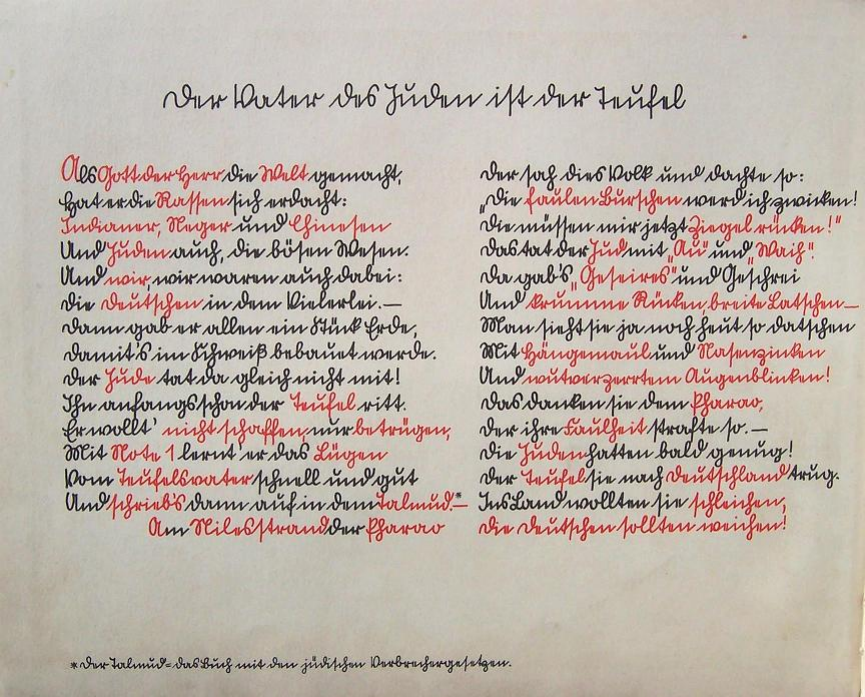 Der Vater des Juden ist der Teufel
Als Gott der Herr die Welt gemacht,
Hat er die Rassen sich erdacht:
Indianer, Neger und Chinesen
Und Juden auch, die bösen Wesen.
Und wir, wir waren auch dabei:
Die Deutschen in dem Vielerlei.—
Dann gab er allen ein Stück Erde,
Damit's im Schweiß bebauet werde.
Der Jude tat da gleich nicht mit!
Ihn anfangs schon der Teufel ritt.
Er wollt' nicht schaffen, nur betrügen,
Mit Note 1 lernt' er das Lügen
Vom Teufelsvater schnell und gut
Und schrieb's dann auf in dem Talmud.*—
Am Nilesstrand der Pharao
Der sah dies Volk und dachte so:
„Die faulen Burschen werd ich zwicken!
Die müssen mir jetzt Ziegel rücken!"
Das tat der Jud mit „Au" und „Waih".
Da gab's „Geseires" und Geschrei
Und krumme Rücken, breite Latschen—
Man sieht sie ja noch heut so datschen
Mit Hängemaul und Nasenzinken
Und wutverzerrtem Augenblinken!
Das danken sie dem Pharao,
Der ihre Faulheit strafte so.—
Die Juden hatten bald genug!
Der Teufel sie nach Deutschland trug.
Ins Land wollten sie schleichen,
Die Deutschen sollten weichen!
* Der Talmud = das Buch mit den jüdischen Verbrechergesetzen.